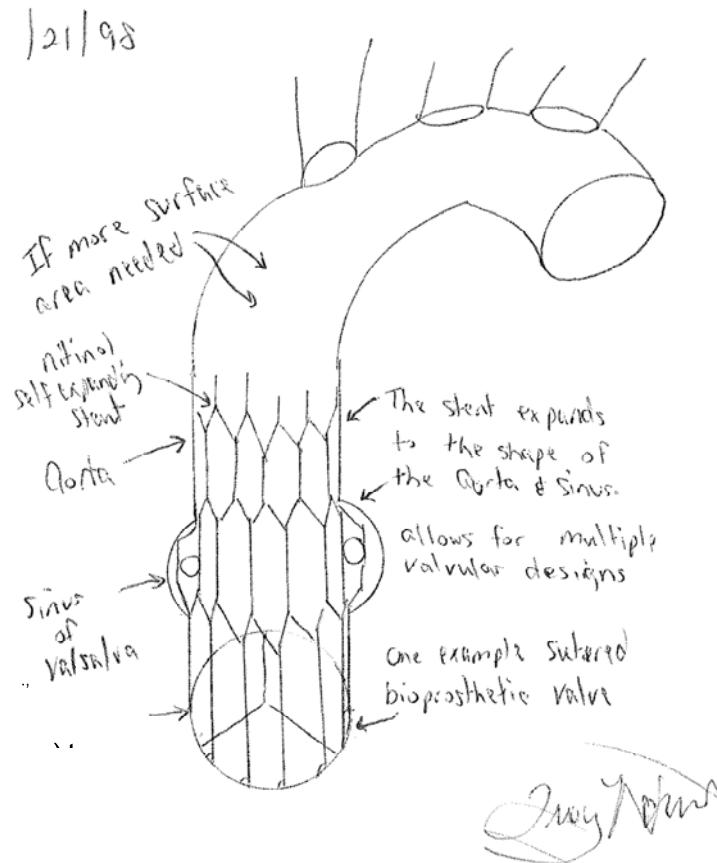 /21/98
If more surface
area needed
nitinol
self expanding
stent
Aorta
The stent expands
to the shape of
the Aorta & sinus.
allows for multiple
valvular designs
sinus
of
valsalva
one example sutered
bioprosthetic valve